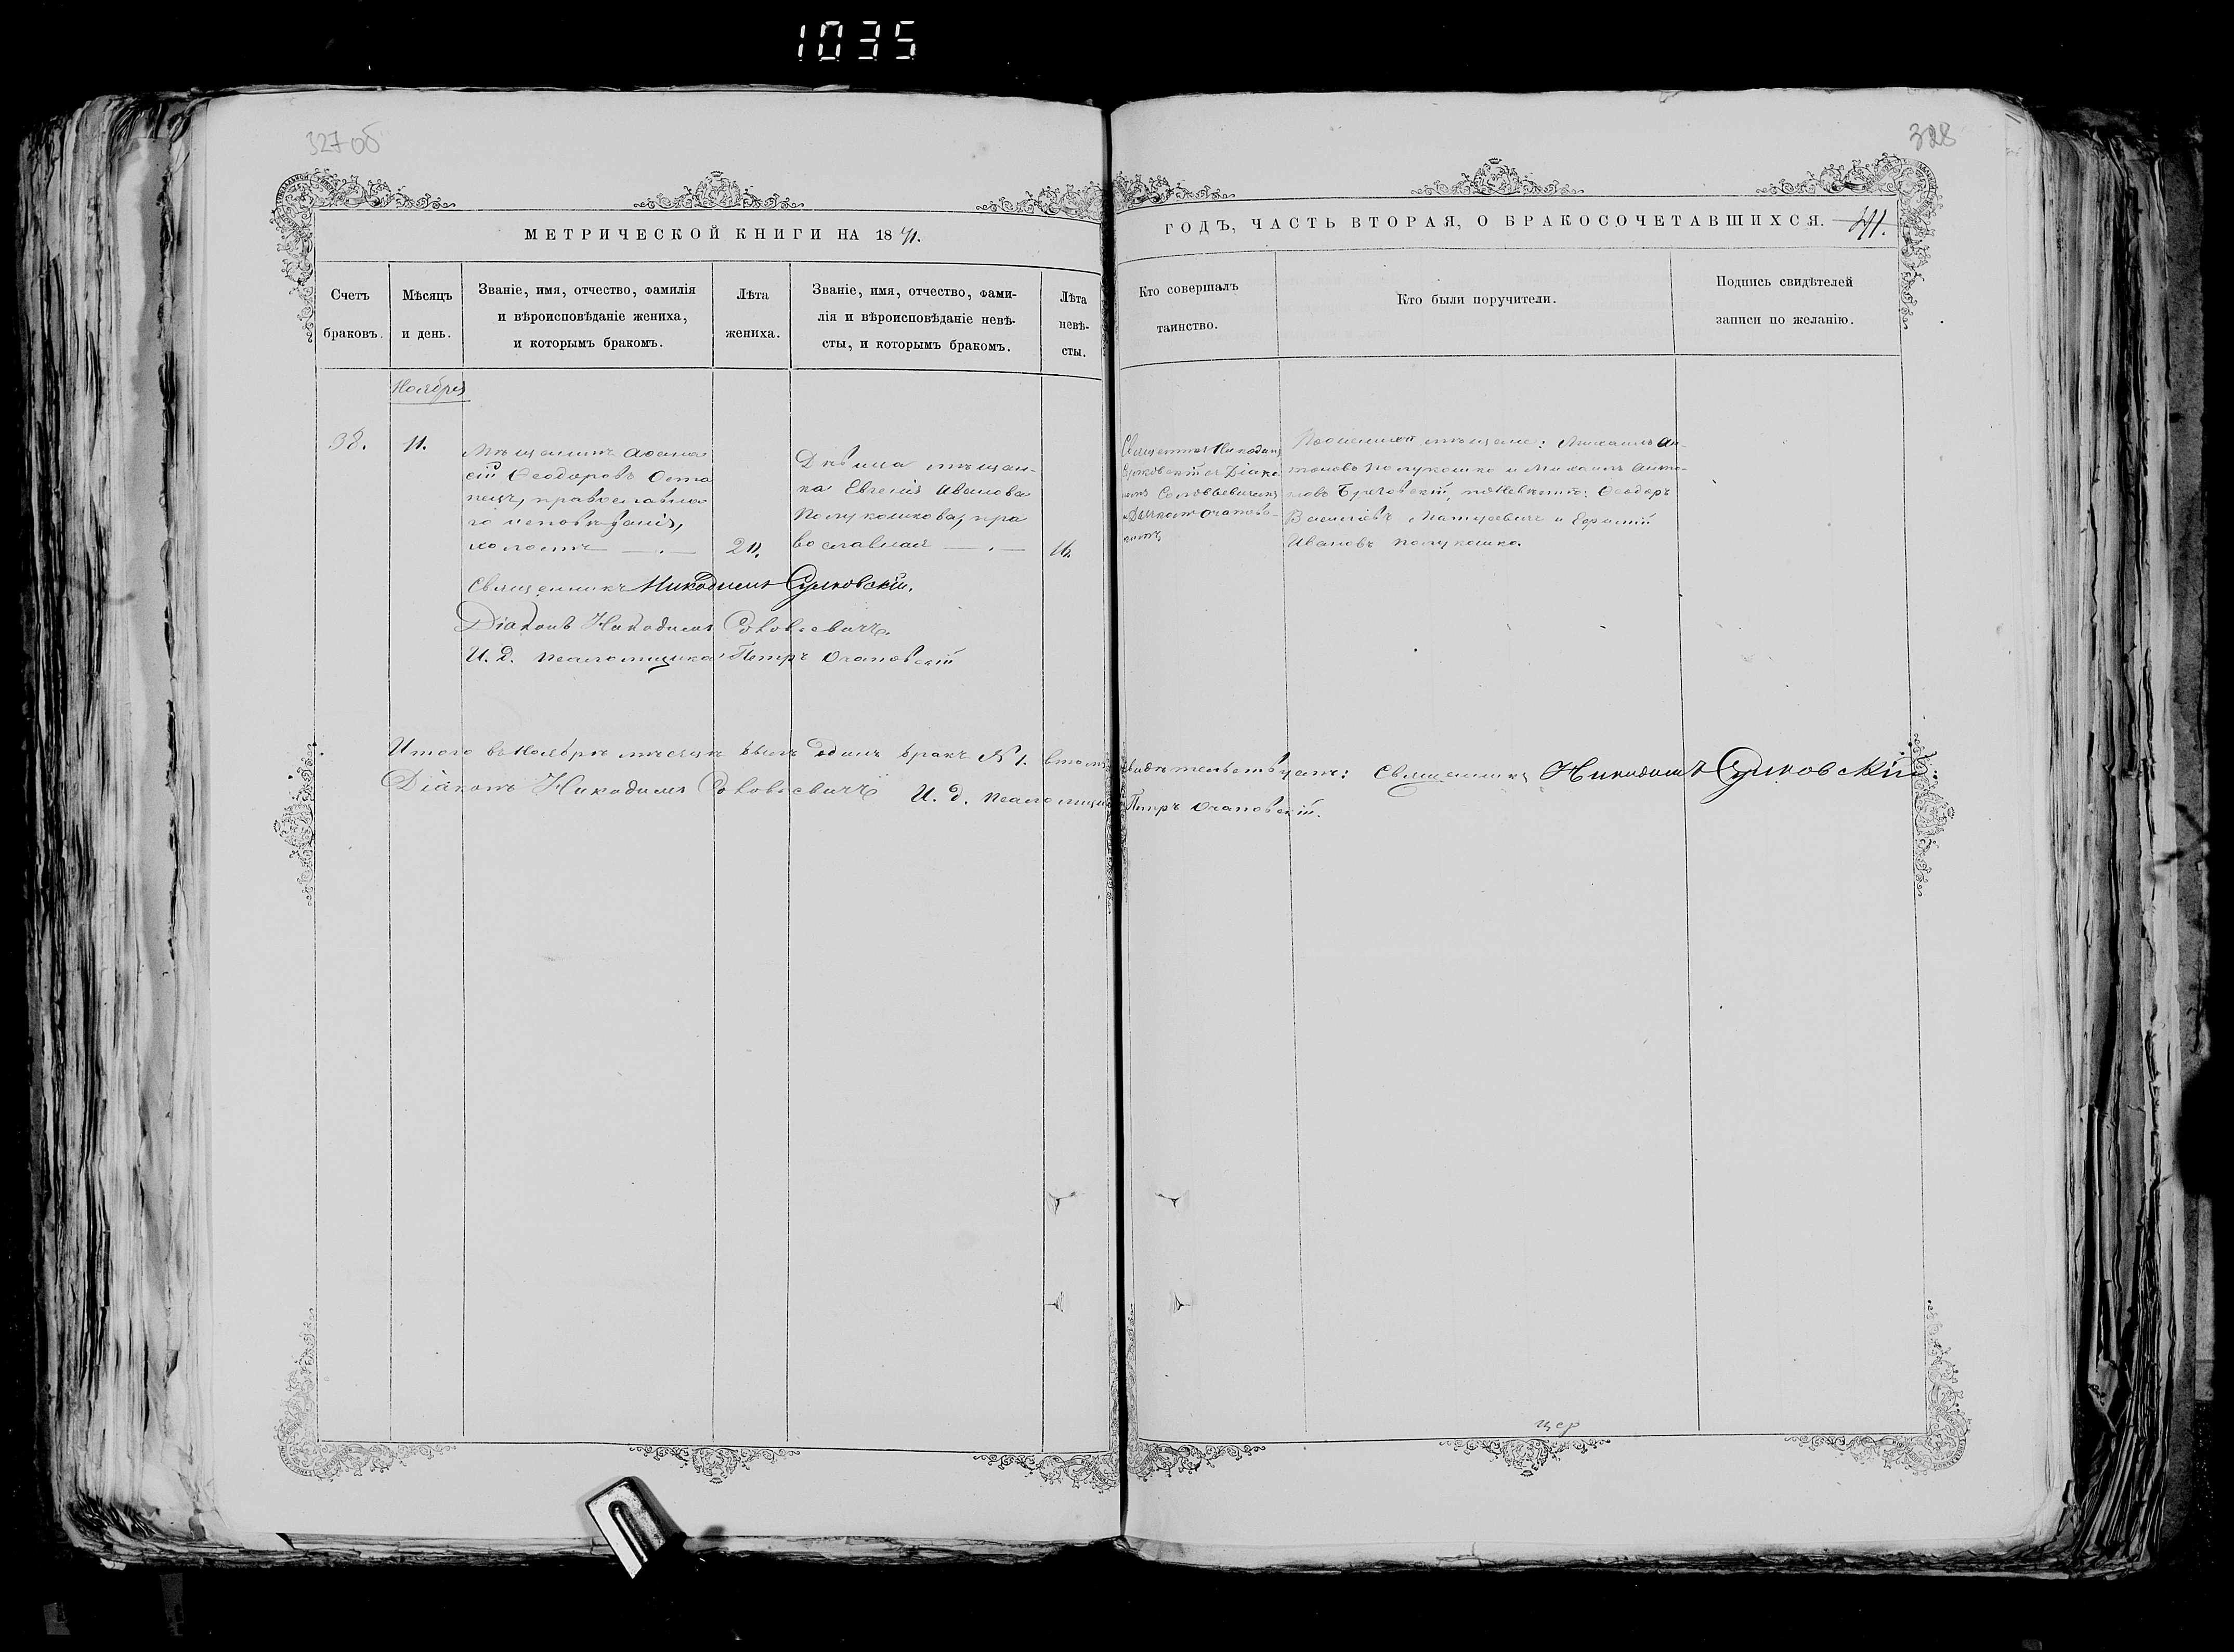 1035
327 об
328
МЕТРИЧЕСКОЙ КНИГИ НА 1871.
ГОДЪ, ЧАСТЬ ВТОРАЯ, О БРАКОСОЧЕТАВШИХСЯ.
Счетъ браковъ.
Мѣсяцъ и день.
Званіе, имя, отчество, фамилія
и вѣроисповѣданіе жениха,
и которымъ бракомъ.
Лѣта
жениха.
Званіе, имя, отчество, фами-
лія и вѣроисповѣданіе невѣ-
сты, и которымъ бракомъ.
Лѣта
невѣ-
сты.
Кто совершалъ
таинство.
Кто были поручители.
Подпись свидѣтелей
записи по желанію.
Ноября
38.
11.
Мѣщанинъ Аѳана
сій Ѳеодоровъ Оста
пецъ, православна
го исповѣданія,
холостъ
21.
Дѣвица мѣщан-
ка Евгенія Иванова
Полукошкова, пра
вославная
16.
Священникъ Никодимъ
Діако-
Соловьевичемъ
По женихѣ мѣщане: Михаилъ Ан-
тоновъ Полукошко и Михаилъ Анто-
новъ по невѣстѣ: Ѳеодоръ
Васильевъ Мацкевичъ и
Ивановъ Полукошко.
Священникъ Никодимъ Сулковскій.
Діаконъ Никодимъ Соловьевичъ.
И. д. псаломщика Петръ Очаповскій
Итого въ Ноябрѣ мѣсяцѣ былъ одинъ бракъ № 1. въ томъ свидѣтельствуемъ: Священникъ Никодимъ Сулковскій:
Діаконъ Никодимъ Соловьевичъ И. д. псаломщика Петръ Очаповскій.
цер